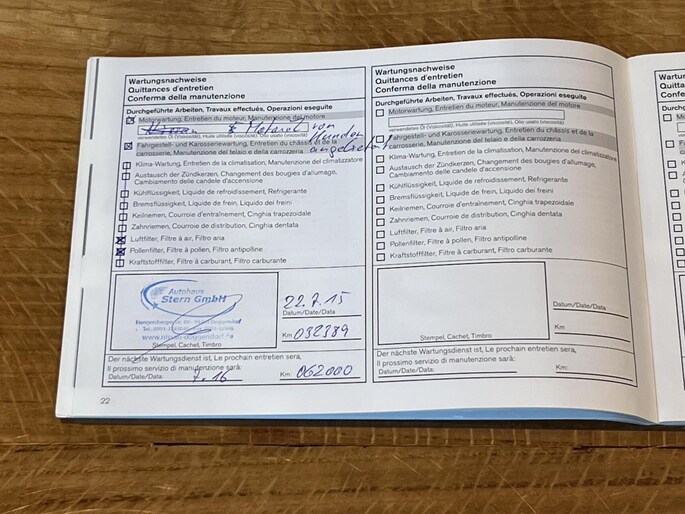 Wartungsnachweise
Quittances d'entretien
Conferma della manutenzione
Durchgeführte Arbeiten, Travaux effectués, Operazioni eseguite
Motorwartung, Entretien du moteur, Manutenzione del motore
& Material von
verwendetes Öl (Viscosität), Huile utilisée (viscosité), Olio usato (viscosità)
Kunden
Fahrgestell- und Karosseriewartung, Entretien du châssis et de la
carrosserie, Manutenzione del telaio e della carrozzeria
Klima-Wartung, Entretien de la climatisation, Manutenzione del climatizzatore
Austausch der Zündkerzen, Changement des bougies d'allumage,
Cambiamento delle candele d'accensione
Kühlflüssigkeit, Liquide de refroidissement, Refrigerante
Bremsflüssigkeit, Liquide de frein, Liquido dei freini
Keilriemen, Courroie d'entraînement, Cinghia trapezoidale
Zahnriemen, Courroie de distribution, Cinghia dentata
Luftfilter, Filtre à air, Filtro aria
Pollenfilter, Filtre à pollen, Filtro antipolline
Kraftstofffilter, Filtre à carburant, Filtro carburante
Autohaus
Stern GmbH
Stempel, Cachet, Timbro
22.7.15
Datum/Date/Data
Km 032339
Der nächste Wartungsdienst ist, Le prochain entretien sera,
Il prossimo servizio di manutenzione sarà:
Datum/Date/Data: 7.16 Km: 062000
22
Wartungsnachweise
Quittances d'entretien
Conferma della manutenzione
Durchgeführte Arbeiten, Travaux effectués, Operazioni eseguite
Motorwartung, Entretien du moteur, Manutenzione del motore
verwendetes Öl (Viscosität), Huile utilisée (viscosité), Olio usato (viscosità)
Fahrgestell- und Karosseriewartung, Entretien du châssis et de la
carrosserie, Manutenzione del telaio e della carrozzeria
Klima-Wartung, Entretien de la climatisation, Manutenzione del climatizzatore
Austausch der Zündkerzen, Changement des bougies d'allumage,
Cambiamento delle candele d'accensione
Kühlflüssigkeit, Liquide de refroidissement, Refrigerante
Bremsflüssigkeit, Liquide de frein, Liquido dei freini
Keilriemen, Courroie d'entraînement, Cinghia trapezoidale
Zahnriemen, Courroie de distribution, Cinghia dentata
Luftfilter, Filtre à air, Filtro aria
Pollenfilter, Filtre à pollen, Filtro antipolline
Kraftstofffilter, Filtre à carburant, Filtro carburante
Stempel, Cachet, Timbro
Datum/Date/Data
Km
Der nächste Wartungsdienst ist, Le prochain entretien sera,
Il prossimo servizio di manutenzione sarà:
Datum/Date/Data: Km: